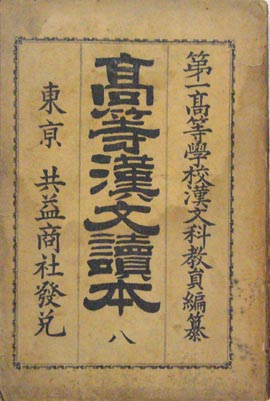 第一髙等學校漢文科教員編纂
髙等漢文讀本 八
東京 共益商社發兌